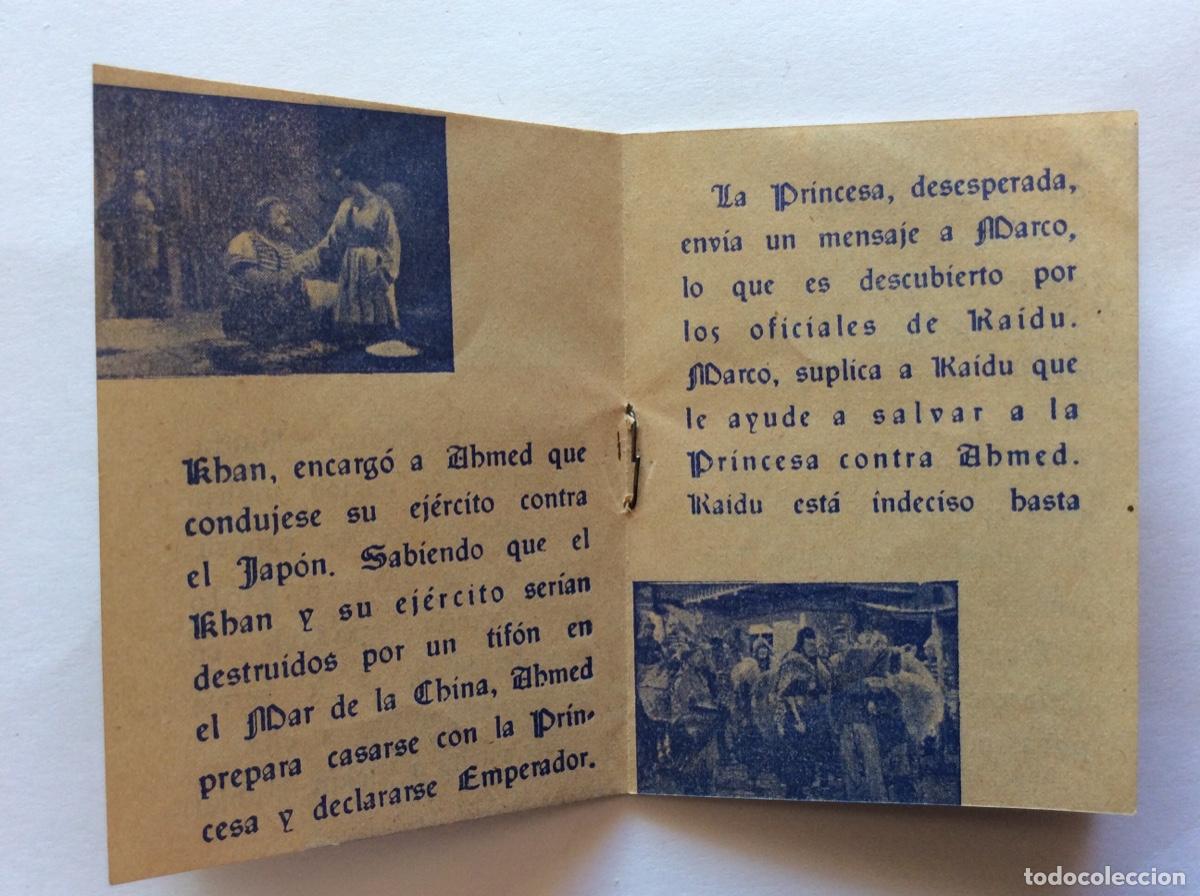 Khan, encargó a Ahmed que
condujese su ejército contra
el Japón. Sabiendo que el
Khan y su ejército serían
destruídos por un tifón en
el Mar de la China, Ahmed
prepara casarse con la Prin-
cesa y declararse Emperador.
La Princesa, desesperada,
envía un mensaje a Marco,
lo que es descubierto por
los oficiales de Kaidu.
Marco, suplica a Kaidu que
le ayude a salvar a la
Princesa contra Ahmed.
Kaidu está indeciso hasta
todocoleccion